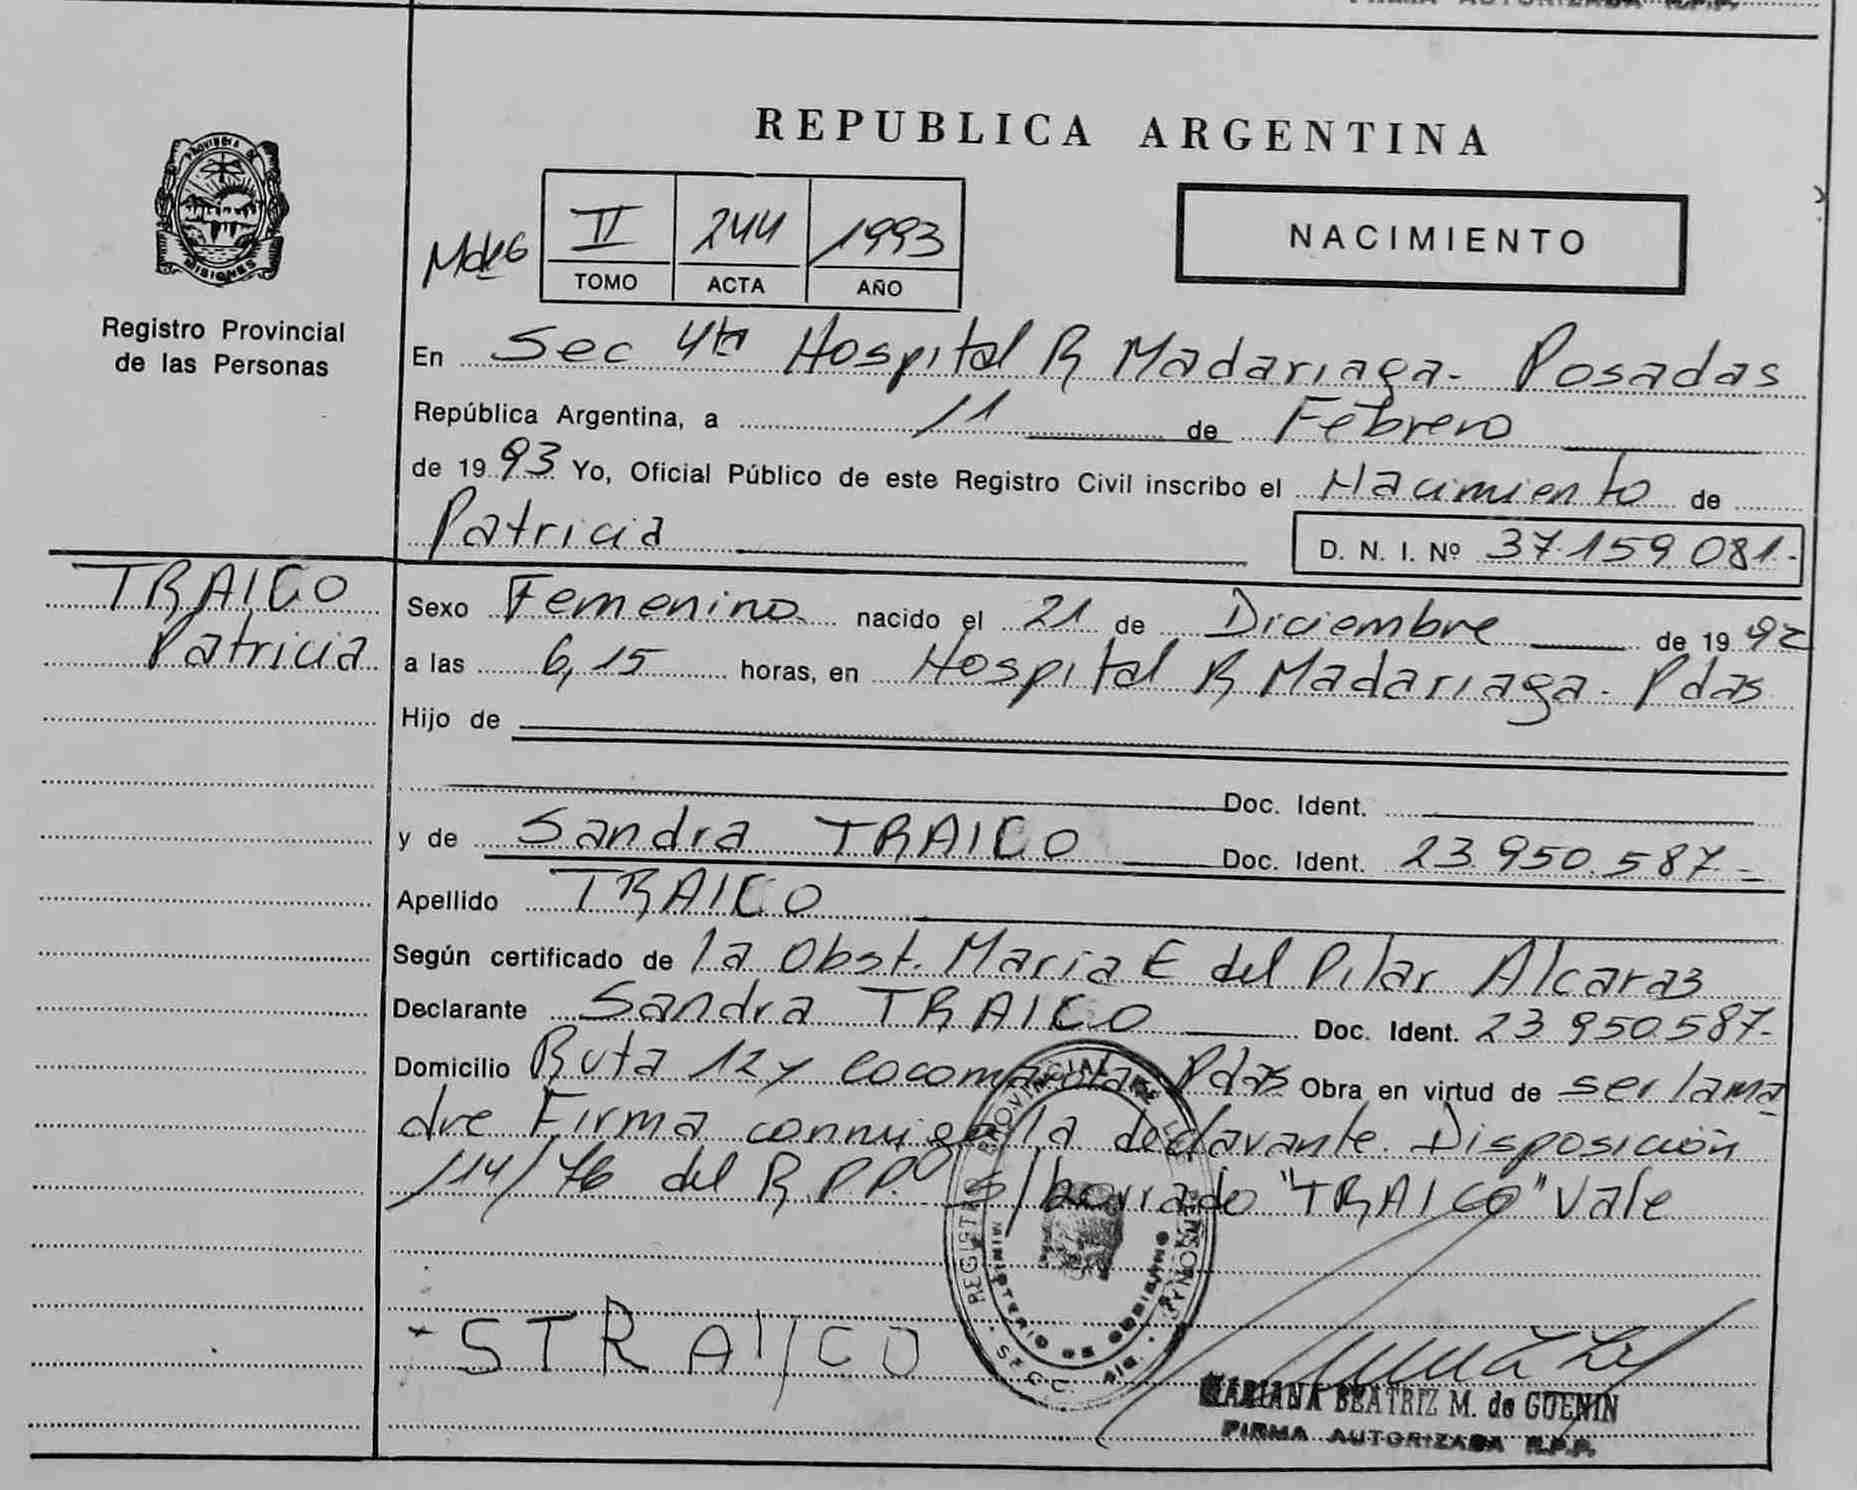 FIRMA AUTORIZADA R.P.P.
REPUBLICA ARGENTINA
PROVINCIA DE
MISIONES
Registro Provincial
de las Personas
II 244 1993
TOMO ACTA AÑO
NACIMIENTO
En Sec 4ta Hospital R Madariaga - Posadas
República Argentina, a 11 de Febrero
de 1993 Yo, Oficial Público de este Registro Civil inscribo el Nacimiento de
Patricia D. N. I. Nº 37.159.081.-
TRAICO
Patricia
Sexo Femenino nacido el 21 de Diciembre de 1992
a las 6,15 horas, en Hospital R Madariaga - Pdas
Hijo de
Doc. Ident.
y de Sandra TRAICO Doc. Ident. 23.950.587.-
Apellido TRAICO
Según certificado de la Obst. Maria E del Pilar Alcaraz
Declarante Sandra TRAICO Doc. Ident. 23 950.587-
Domicilio Ruta 12 y Cocomarola Pdas Obra en virtud de ser la ma
dre Firma conmigo la declarante. Disposición
114/76 del R.P.P. s/borrado "TRAICO" Vale
REGISTRO PROVINCIAL DE LAS PERSONAS
MINISTERIO DE GOBIERNO
STRAICO
MARIANA BEATRIZ M. de GUENIN
FIRMA AUTORIZADA R.P.P.